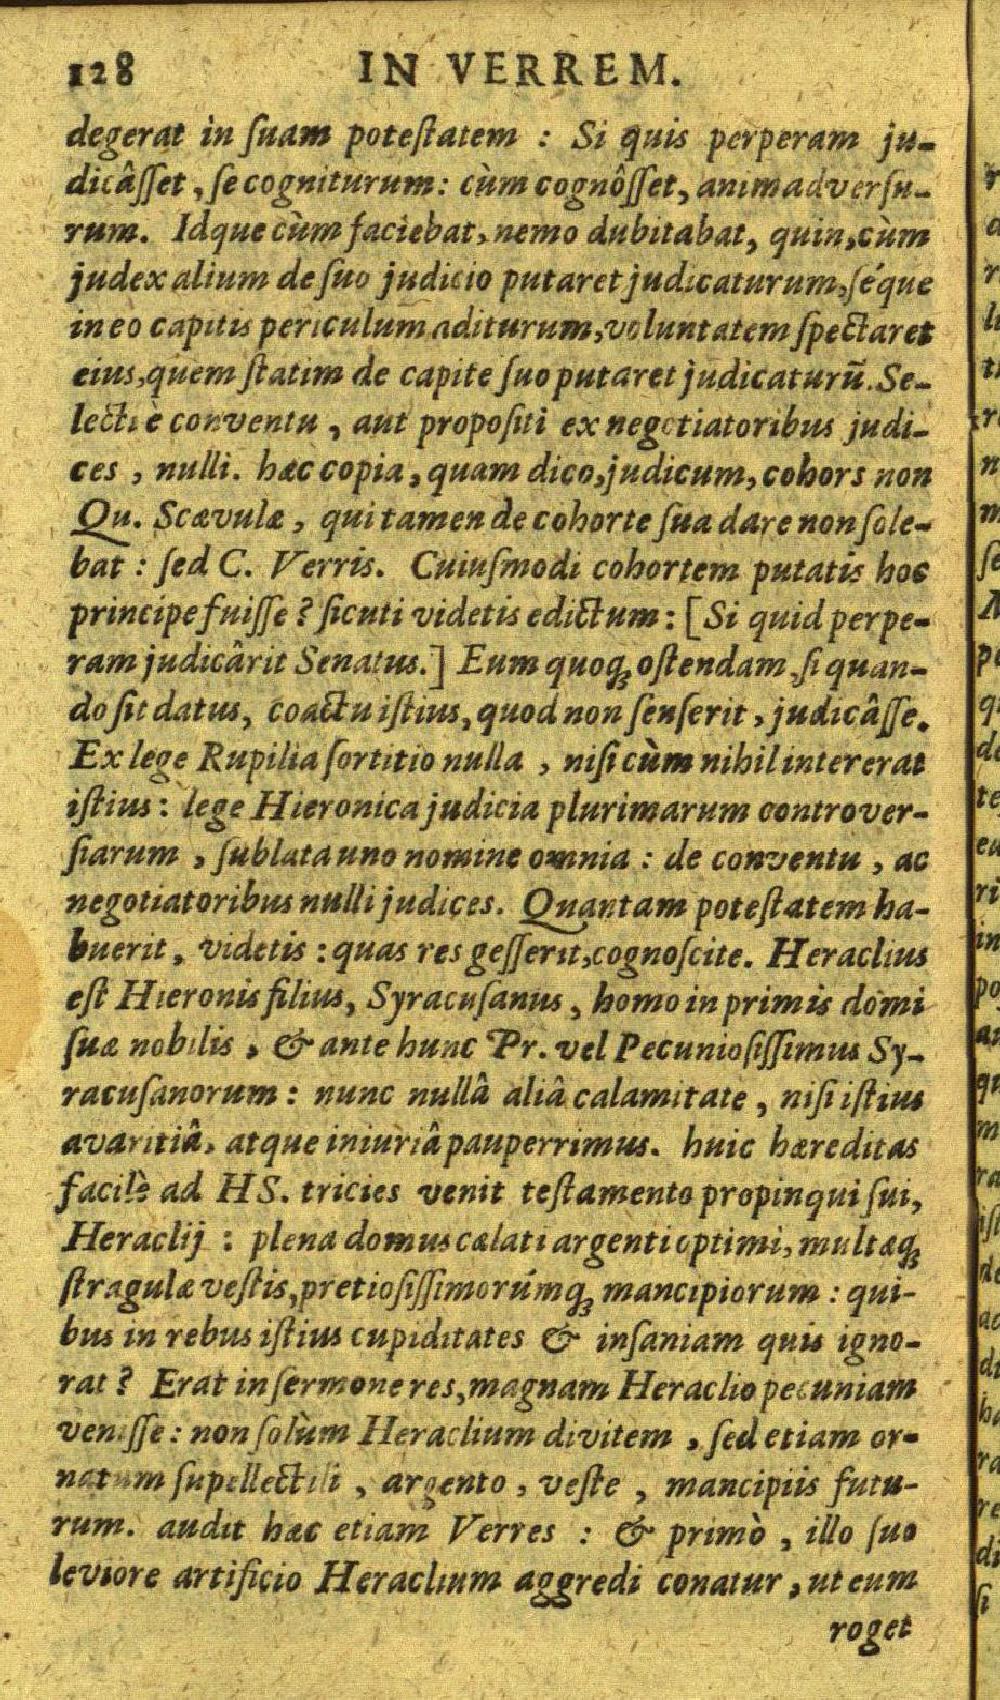 128 IN VERREM.
degerat in ſuam poteſtatem : Si quis perperam ju-
dicâſſet, ſe cogniturum: cùm cognôſſet, animadverſu-
rum. Idque cùm faciebat, nemo dubitabat, quin, cùm
judex alium de ſuo judicio putaret judicaturum, ſéque
in eo capitis periculum aditurum, voluntatem ſpectaret
eius, quem ſtatim de capite ſuo putaret judicaturū. Se-
lecti è conventu, aut propoſiti ex negotiatoribus judi-
ces, nulli. hæc copia, quam dico, judicum, cohors non
Qu. Scævulæ, qui tamen de cohorte ſua dare non ſole-
bat : ſed C. Verris. Cuiuſmodi cohortem putatis hoc
principe fuiſſe ? ſicuti videtis edictum : [Si quid perpe-
ram judicârit Senatus.] Eum quoq; oſtendam, ſi quan-
do ſit datus, coactu iſtius, quod non ſenſerit, judicâſſe.
Ex lege Rupilia ſortitio nulla, niſi cùm nihil intererat
iſtius: lege Hieronica judicia plurimarum controver-
ſiarum, ſublata uno nomine omnia : de conventu, ac
negotiatoribus nulli judices. Quantam poteſtatem ha-
buerit, videtis : quas res geſſerit, cognoſcite. Heraclius
eſt Hieronis filius, Syracuſanus, homo in primis domi
ſuæ nobilis, & ante hunc Pr. vel Pecunioſiſſimus Sy-
racuſanorum : nunc nullâ aliâ calamitate, niſi iſtius
avaritiâ, atque iniuriâ pauperrimus. huic hæreditas
facilè ad HS. tricies venit teſtamento propinqui ſui,
Heraclij : plena domus cælati argenti optimi, multæq;
ſtragulæ veſtis, pretioſiſſimorúmq; mancipiorum : qui-
bus in rebus iſtius cupiditates & inſaniam quis igno-
rat ? Erat in ſermone res, magnam Heraclio pecuniam
veniſſe: non ſolùm Heraclium divitem, ſed etiam or-
natum ſupellectili, argento, veſte, mancipiis futu-
rum. audit hæc etiam Verres : & primò, illo ſuo
leviore artificio Heraclium aggredi conatur, ut eum
roget